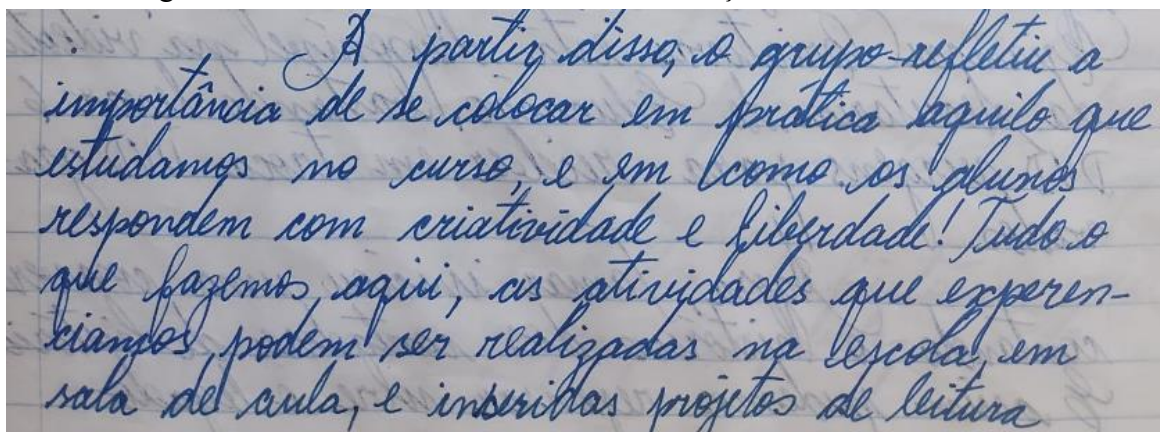 A partir disso, o grupo refletiu a
importância de se colocar em prática aquilo que
estudamos no curso, e em como os alunos
respondem com criatividade e liberdade! Tudo o
que fazemos aqui, as atividades que experen-
ciamos, podem ser realizadas na escola, em
sala de aula, e inseridas projetos de leitura